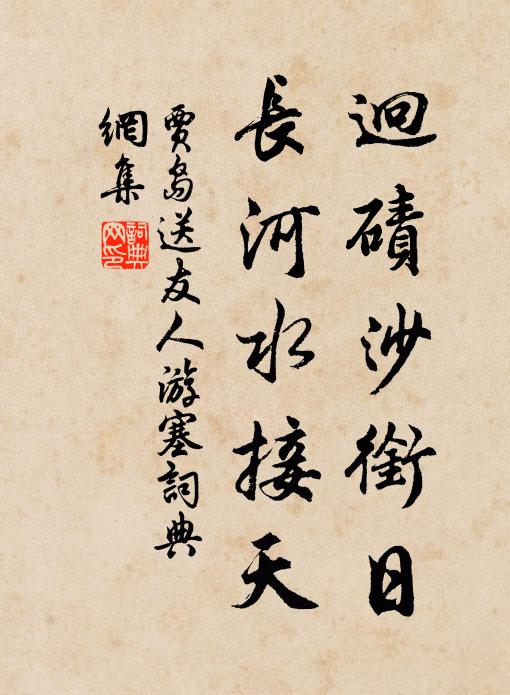 迥磧沙銜日
長河水接天
賈島送友人游塞詞典
網集
詞典
网印